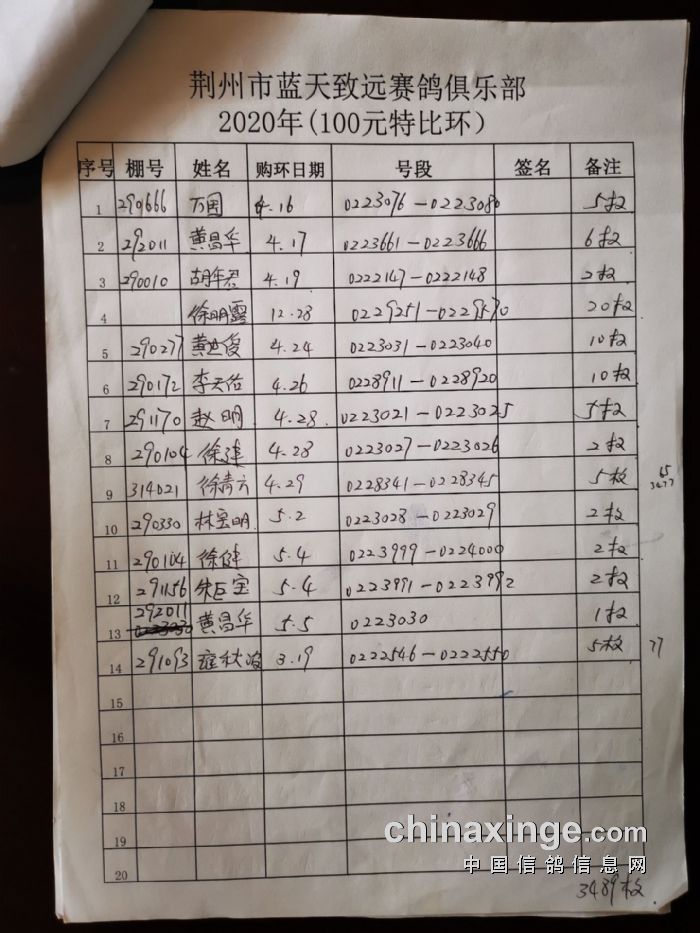 荆州市蓝天致远赛鸽俱乐部
2020年(100元特比环)
序号 棚号 姓名 购环日期 号段 签名 备注
1 290666 万国 4.16 0223076-0223080 5枚
2 292011 黄昌华 4.17 0223661-0223666 6枚
3 290010 胡年君 4.19 0222147-0222148 2枚
4 徐明露 12.28 20枚
5 290277 黄世俊 4.24 0223031-0223040 10枚
6 290172 李天佑 4.26 0228911-0228920 10枚
7 291170 赵明 4.28. 0223021-0223025 5枚
8 290104 徐建 4.28 0223027-0223026 2枚
9 314021 徐青方 4.29 0228341-0228345 5枚
10 290330 林宝明. 5.2 0223028-0223029 2枚
11 290104 徐健 5.4 0223999-0224000 2枚
12 291156 朱巨宝 5.4 0223991-0223992 2枚
292011
13 黄昌华 5.5 0223030 1枚
14 291093 雍秋波 3.19 0222546-0222550 5枚 77
15
16
17
18
19
20
3489枚
chinaxinge.com
中国信鸽信息网